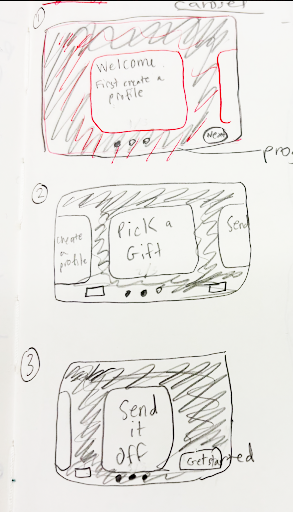 carousel
①
Welcome.
First create a
profile
Next
pro
②
create
a
profile
Pick a
Gift
Send
③
Send
it
off
Get started